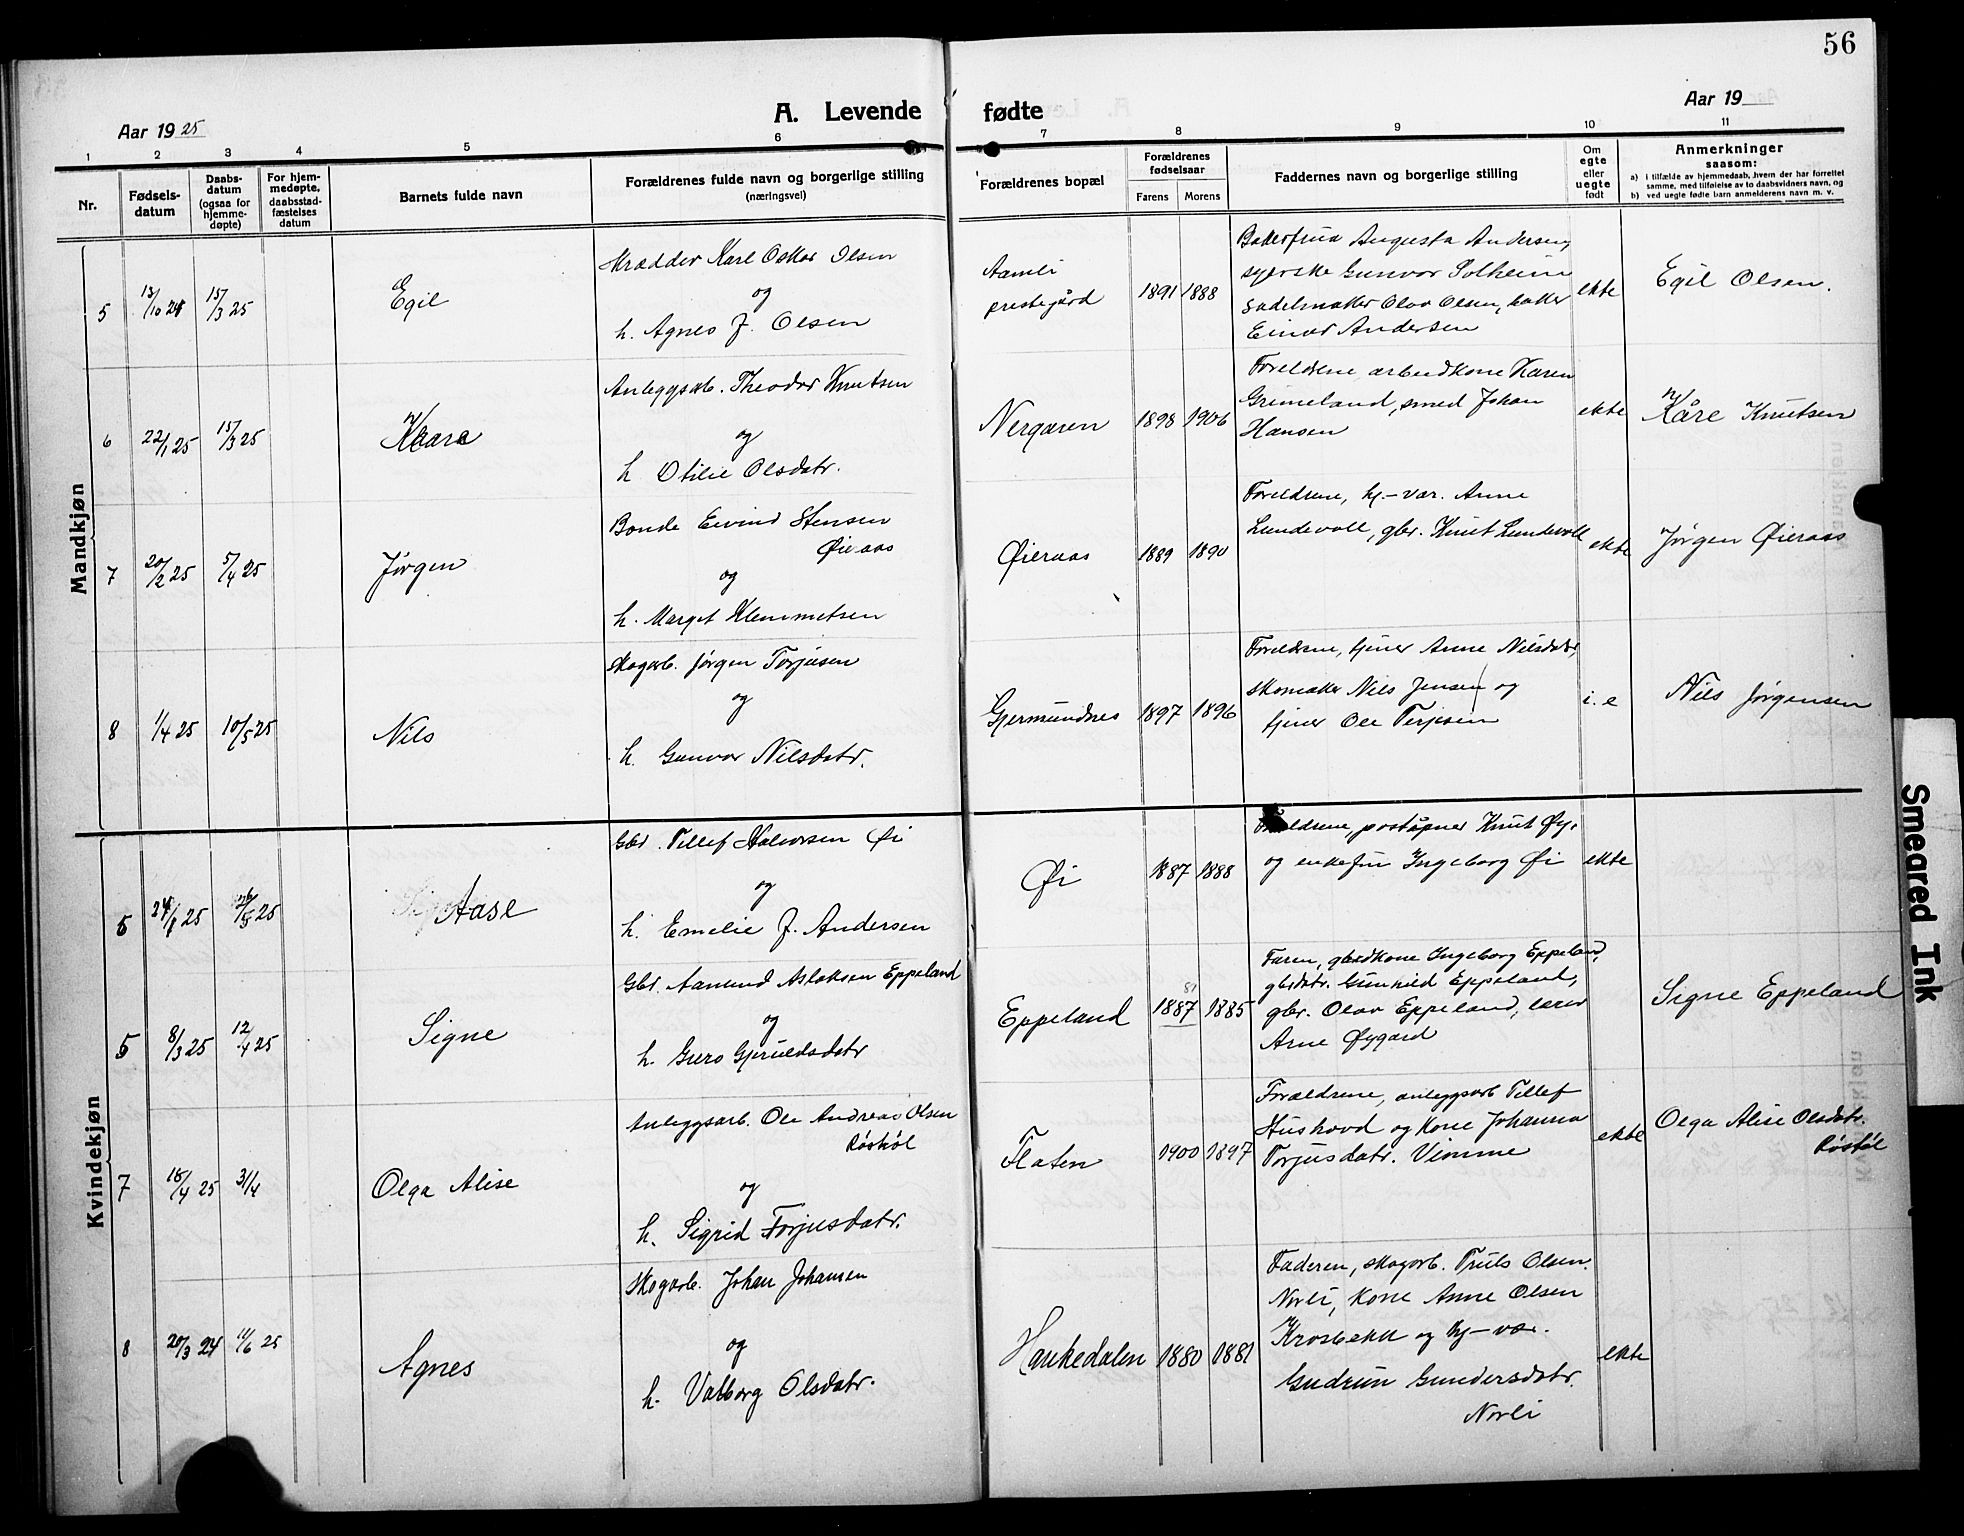 56
Aar 1925
A. Levende fødte
Aar 19
1 2 3 4 5 6 7 8 9 10 11
Nr.
Fødsels-
datum
Daabs-
datum
(ogsaa for
hjemme-
døpte)
For hjem-
medøpte,
daabsstad-
fæstelses
datum
Barnets fulde navn
Forældrenes fulde navn og borgerlige stilling
(næringsvei)
Forældrenes bopæl
Forældrenes
fødselsaar
Farens Morens
Faddernes navn og borgerlige stilling
Om
egte
eller
uegte
født
Anmerkninger
saasom:
a) i tilfælde av hjemmedaab, hvem der har forrettet
samme, med tilføielse av to daabsvidners navn, og
b) ved uegte fødte barn anmelderens navn m. v.
Mandkjøn
5 13/10 24 15/3 25 Egil
Skrædder Karl Oskar Olsen
og
h. Agnes J. Olsen
Aamli
prestegård
1891 1888
Bakerfrua Augusta Andersen,
syerske Gunvor Solheim
sadelmaker Olav Olsen, baker
Einar Andersen
ekte
Egil Olsen.
6 22/1 25 15/3 25 Kaare
Anleggsarb. Theodor Knutsen
og
h Otilie Olsdatr.
Nergaren
1898 1906
Foreldrene, arbeidkone Karen
Grimeland, smed Johan
Hansen
ekte
Kåre Knutsen
7 20/2 25 5/4 25 Jørgen
Bonde Eivind Stensen
Øieraas
og
h. Margit Klemmetsen
Øieraas
1889 1890
Foreldrene, hj-vær. Anne
Lundevoll, gbr. Knut Lundevoll
ekte
Jørgen Øieraas
8 1/4 25 10/5 25 Nils
Skogarb. Jørgen Torjusen
og
h. Gunvor Nilsdatr.
Gjermundnes
1897 1896
Foreldrene, tjener Anne Nilsdatr,
skomaker Nils Jensen og
tjener Ole Terjesen
i. e
Nils Jørgensen
Kvindekjøn
5 24/1 25 26/5 25 Aase
Gbr. Tellef Halvorsen Øi
og
h. Emelie J. Andersen
Øi
1887 1888
Foreldrene, poståpner Knut Øy,
og enkefru Ingeborg Øi
ekte
6 8/3 25 12/4 25 Signe
Gbr. Aamund Aslaksen Eppeland
og
h. Guro Gjeruldsdatr
Eppeland
81
1887 1885
Faren, gbrkone Ingeborg Eppeland,
gbrdatr. Gunnild Eppeland,
gbr. Olav Eppeland, lærer
Arne Øygard
Signe Eppeland
7 18/4 25 31/4 Olga Alise
Anleggsarb. Ole Andreas Olsen
Røstøl
og
h. Sigrid Torjusdatr.
Flaten
1900 1897
Forældrene, anleggsarb Tellef
Hushovd og kone Johanna
Torjusdatr. Vimme
ekte
Olga Alise Olsdatr.
Røstøl
8 20/3 24 11/6 25 Agnes
Skogarb. Johan Johansen
og
h. Valborg Olsdatr.
Haukedalen
1880 1881
Faderen, skogarb. Truls Olsen
Norli, kone Anne Olsen
Krosbekk og hj-vær.
Gudrun Gundersdatr.
Norli
ekte
Smeared Ink